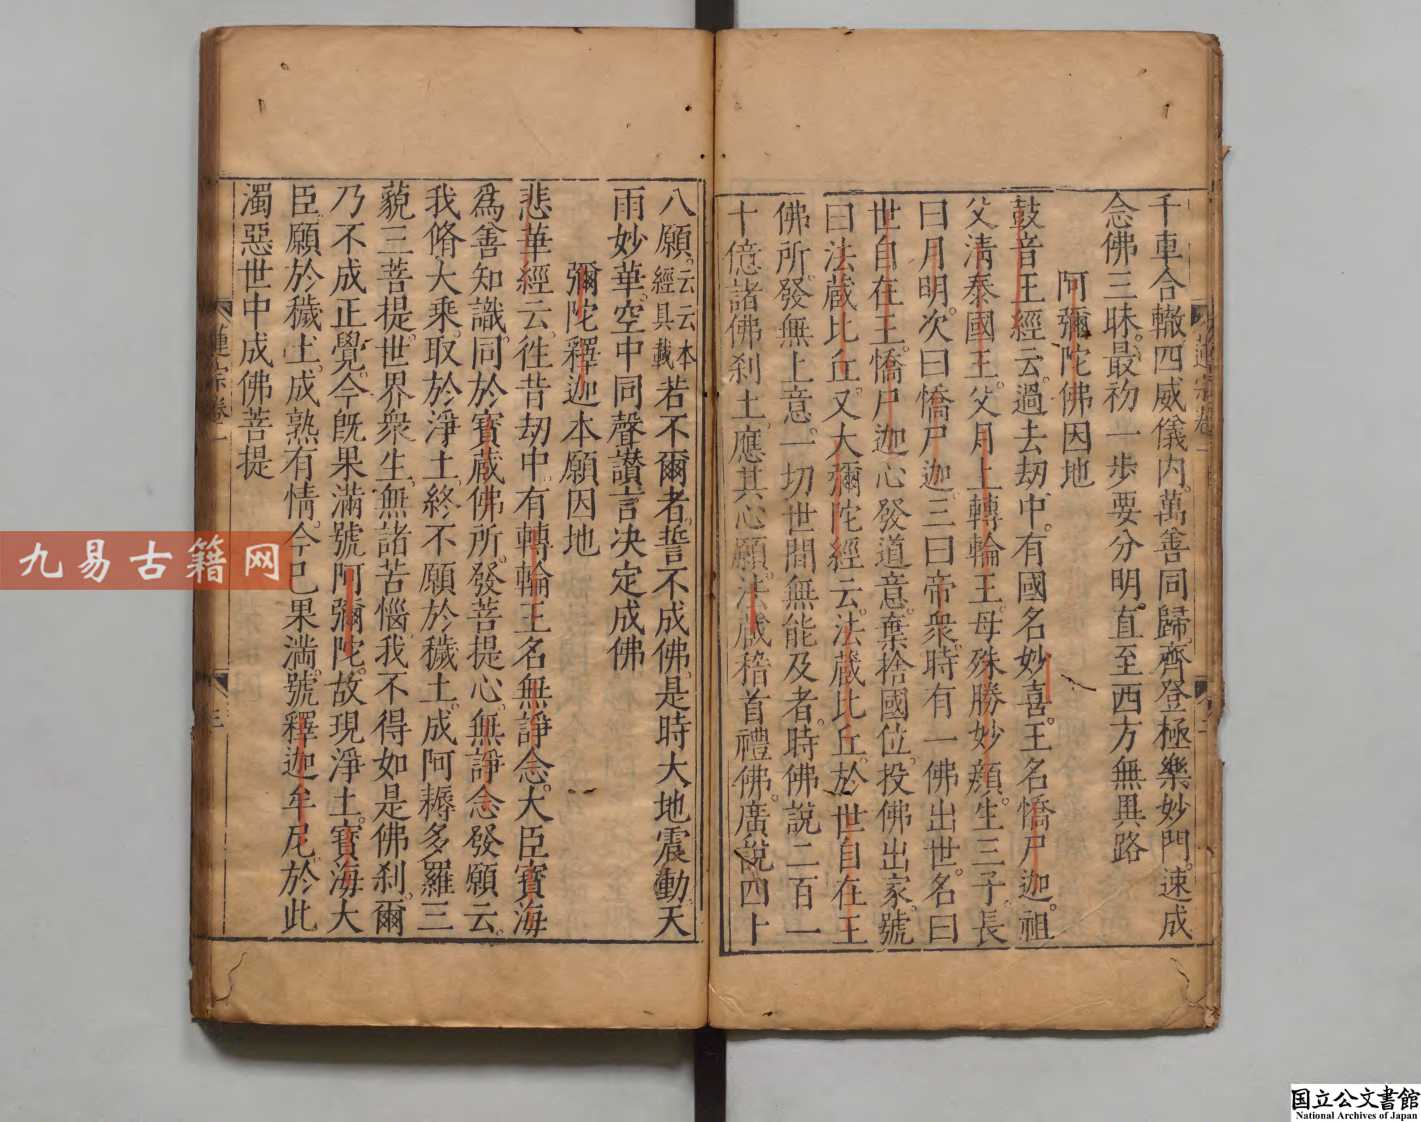 千車合轍四威儀內。萬善同歸。齊登極樂妙門。速成
念佛三昧。最初一步要分明。直至西方無異路
阿彌陀佛因地
鼓音王經云。過去劫中。有國名妙喜。王名憍尸迦。祖
父清泰國王。父月上轉輪王。母殊勝妙顏。生三子。長
曰月明。次曰憍尸迦。三曰帝衆。時有一佛出世。名曰
世自在王。憍尸迦心發道意。棄捨國位。投佛出家。號
曰法藏比丘。又大彌陀經云。法藏比丘。於世自在王
佛所。發無上意。一切世間無能及者。時佛說二百一
十億諸佛剎土。應其心願。法藏稽首禮佛。廣說四十
八願。云云本經具載若不爾者。誓不成佛。是時大地震動。天
雨妙華。空中同聲讚言決定成佛
彌陀釋迦本願因地
悲華經云。徃昔劫中。有轉輪王名無諍念。大臣寶海
爲善知識。同於寶藏佛所。發菩提心。無諍念發願云。
我脩大乘取於淨土。終不願於穢土。成阿耨多羅三
藐三菩提。世界衆生。無諸苦惱。我不得如是佛剎。爾
乃不成正覺。今旣果滿。號阿彌陀。故現淨土。寶海大
臣。願於穢土。成熟有情。今已果滿。號釋迦牟尼。於此
濁惡世中成佛菩提
蓮宗卷一
三
九易古籍网
国立公文書館
National Archives of Japan